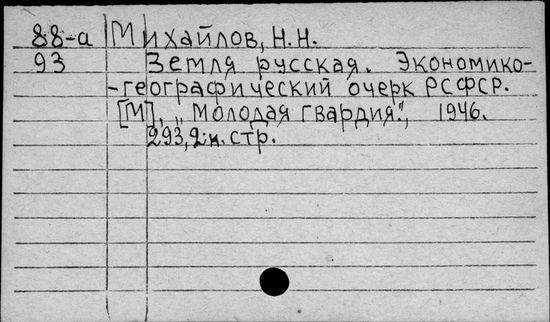 88-а Михайлов, Н.Н.
93 Земля русская. Экономико-
-географический очерк РСФСР.
[М], „Молодая гвардия", 1946.
293, 2 н. стр.